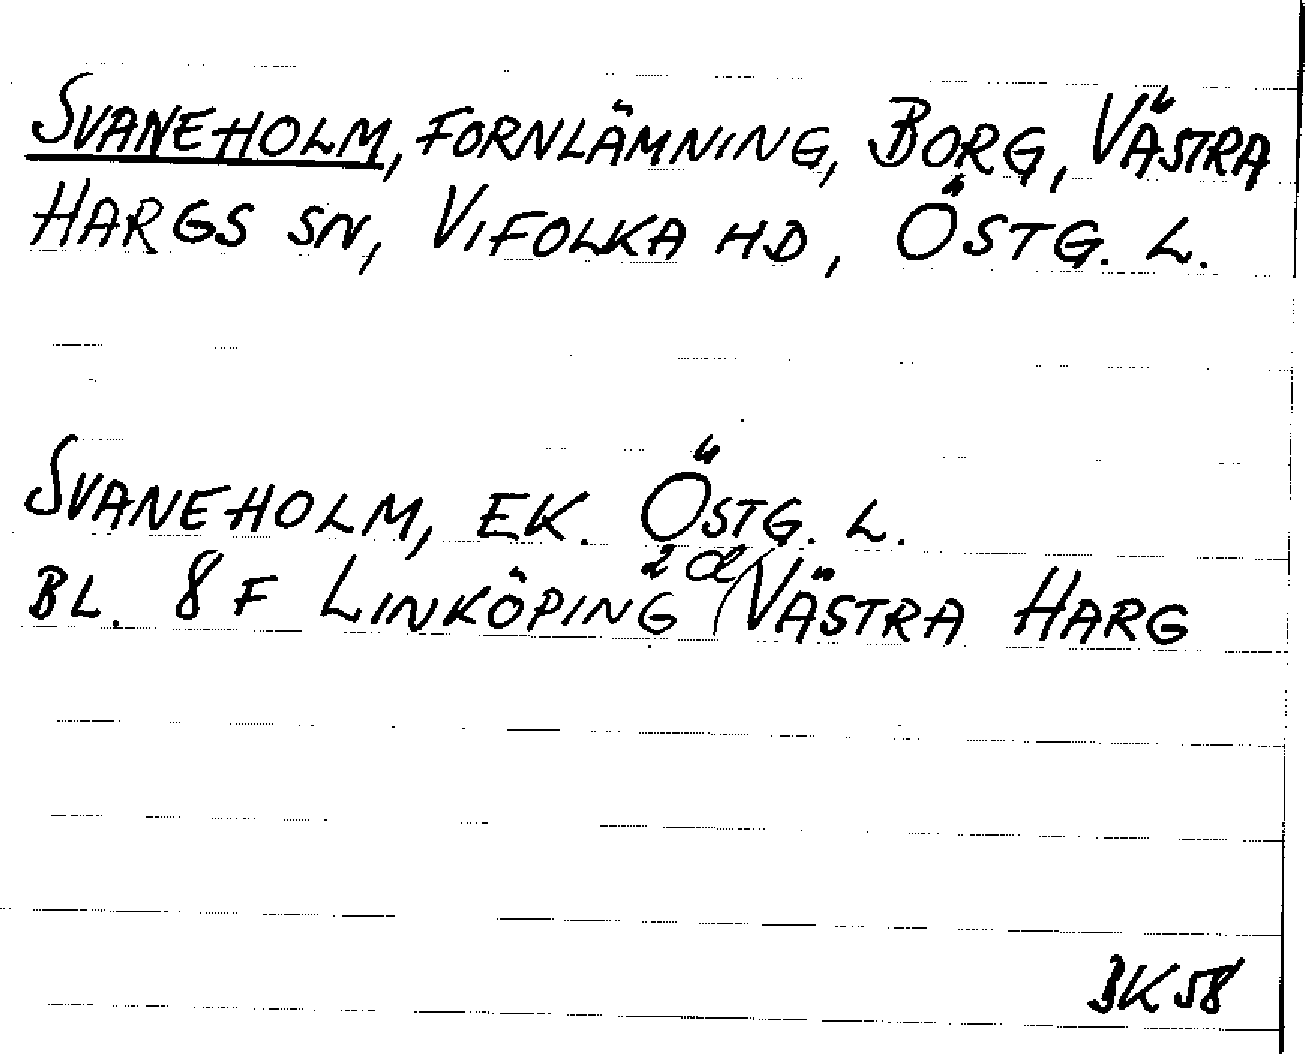 SVANEHOLM, FORNLÄMNING, BORG, VÄSTRA
HARGS SN, VIFOLKA HD, ÖSTG. L.
SVANEHOLM, EK. ÖSTG. L.
BL. 8 F LINKÖPING 2 d VÄSTRA HARG
BK 58